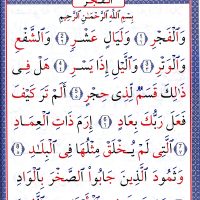 الفجر
بِسْمِ اللَّهِ الرَّحْمَٰنِ الرَّحِيمِ
وَالْفَجْرِ ﴿١﴾ وَلَيَالٍ عَشْرٍ ﴿٢﴾ وَالشَّفْعِ
وَالْوَتْرِ ﴿٣﴾ وَاللَّيْلِ إِذَا يَسْرِ ﴿٤﴾ هَلْ فِي
ذَٰلِكَ قَسَمٌ لِّذِي حِجْرٍ ﴿٥﴾ أَلَمْ تَرَ كَيْفَ
فَعَلَ رَبُّكَ بِعَادٍ ﴿٦﴾ إِرَمَ ذَاتِ الْعِمَادِ
﴿٧﴾ الَّتِي لَمْ يُخْلَقْ مِثْلُهَا فِي الْبِلَادِ ﴿٨﴾
وَثَمُودَ الَّذِينَ جَابُوا الصَّخْرَ بِالْوَادِ